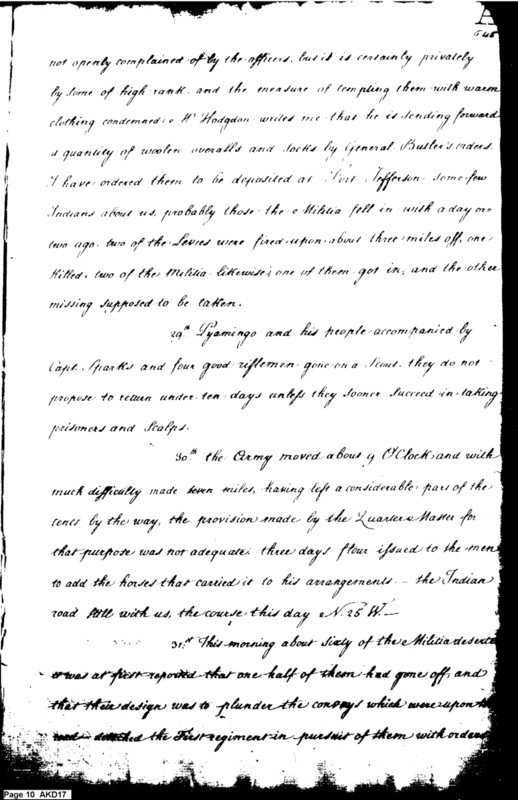 A
645
not openly complained of by the officers, but it is certainly privately
by some of high rank, and the measure of tempting them with warm
clothing condemned; Mr Hodgdon writes me that he is sending forward
a quantity of woolen overalls and socks by General Butler's orders.
I have ordered them to be deposited at Fort Jefferson. some few
Indians about us, probably those the Militia fell in with a day or
two ago. two of the Levies were fired upon about three miles off, one
killed. two of the Militia likewise; one of them got in, and the other
missing supposed to be taken.
29.th Pyamingo and his people accompanied by
Capt. Sparks and four good riflemen gone on a Scout. they do not
propose to return under ten days unless they sooner succeed in taking
prisoners and Scalps.
30.th the Army moved about 9 O'Clock and with
much difficulty made seven miles, having left a considerable part of the
tents by the way, the provision made by the Quarter Master for
that purpose was not adequate. three days flour issued to the men
to add the horses that carried it to his arrangements — the Indian
road still with us, the course this day N. 25 W. —
31.st This morning about sixty of the Militia deserted
it was at first reported that one half of them had gone off, and
that their design was to plunder the convoys which were upon the
road - detached the First regiment in pursuit of them with orders
Page 10 AKD17